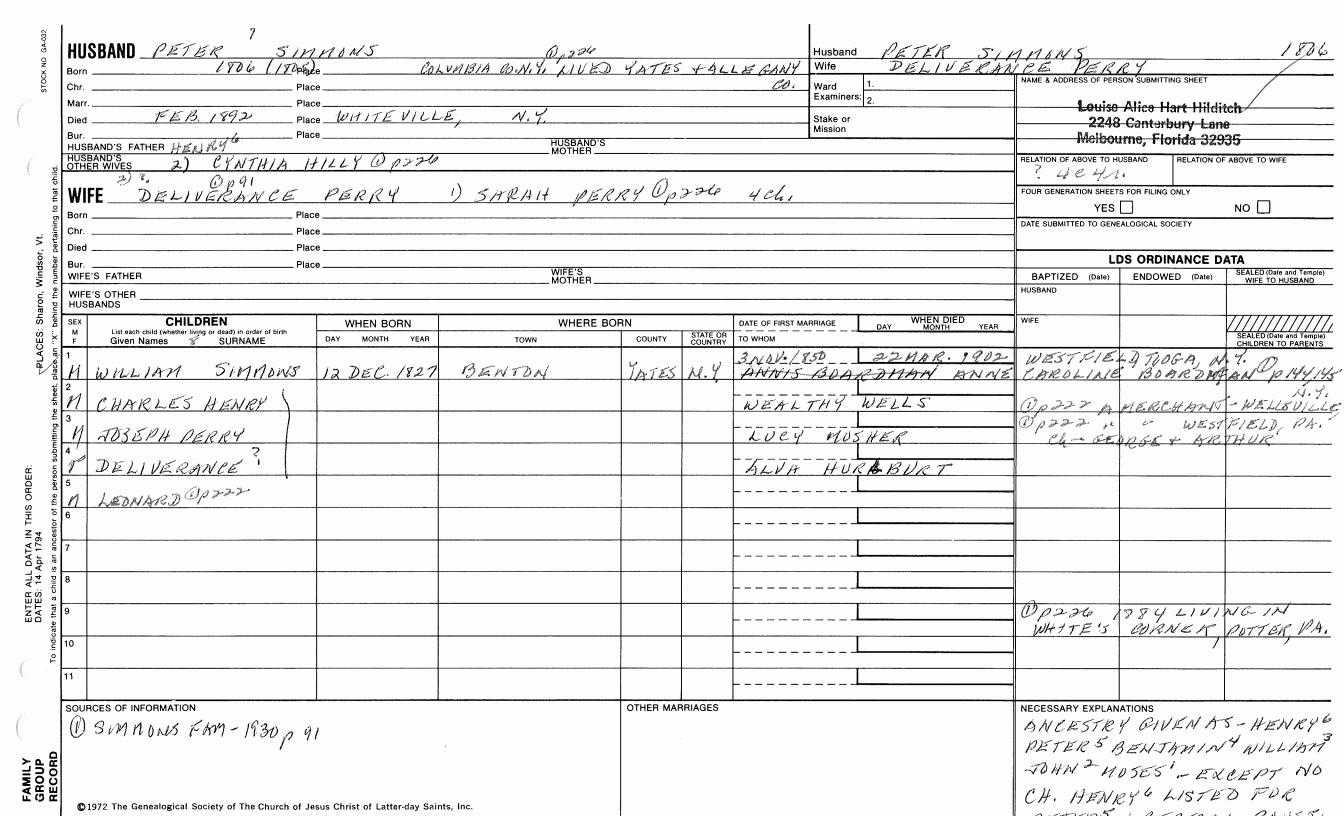 STOCK NO. GA-032
7
HUSBAND PETER SIMMONS ① p226
Born 1806 (1805) Place COLUMBIA CO. N.Y. LIVED YATES + ALLEGANY
Chr. Place CO.
Marr. Place
Died FEB. 1892 Place WHITEVILLE, N.Y.
Bur. Place
HUSBAND'S FATHER HENRY⁶ HUSBAND'S MOTHER
HUSBAND'S OTHER WIVES 2) CYNTHIA HILLY ① p226
2) ?. ① p91
WIFE DELIVERANCE PERRY 1) SARAH PERRY ① p226 4 ch.
Born Place
Chr. Place
Died Place
Bur. Place
WIFE'S FATHER WIFE'S MOTHER
WIFE'S OTHER HUSBANDS
Husband PETER SIMMONS 1806
Wife DELIVERANCE PERRY
Ward Examiners: 1.
2.
Stake or Mission
NAME & ADDRESS OF PERSON SUBMITTING SHEET
Louise Alice Hart Hilditch
2248 Canterbury Lane
Melbourne, Florida 32935
RELATION OF ABOVE TO HUSBAND RELATION OF ABOVE TO WIFE
FOUR GENERATION SHEETS FOR FILING ONLY
YES NO
DATE SUBMITTED TO GENEALOGICAL SOCIETY
LDS ORDINANCE DATA
BAPTIZED (Date) ENDOWED (Date) SEALED (Date and Temple) WIFE TO HUSBAND
HUSBAND
WIFE
SEALED (Date and Temple) CHILDREN TO PARENTS
SEX M F CHILDREN WHEN BORN WHERE BORN DATE OF FIRST MARRIAGE WHEN DIED
List each child (whether living or dead) in order of birth
Given Names SURNAME DAY MONTH YEAR TOWN COUNTY STATE OR COUNTRY TO WHOM DAY MONTH YEAR
1 3 NOV. 1850 22 MAR. 1902 WESTFIELD, TIOGA, N.Y.
M WILLIAM SIMMONS 12 DEC. 1827 BENTON YATES N.Y ANNIS BOARDMAN ANNE CAROLINE BOARDMAN ① p144,145
2 N.Y.
M CHARLES HENRY WEALTHY WELLS ① p222 A MERCHANT - WELLSVILLE,
3 ① p222 " " WESTFIELD, PA.
M JOSEPH PERRY LUCY MOSHER Ch - GEORGE + ARTHUR
4
F DELIVERANCE ? ALVA HURLBURT
5
M LEONARD ① p222
6
7
8
9 ① p226 1884 LIVING IN
WHITE'S CORNER, POTTER, PA.
10
11
SOURCES OF INFORMATION
① SIMMONS FAM - 1930 p 91
OTHER MARRIAGES
NECESSARY EXPLANATIONS
ANCESTRY GIVEN AS - HENRY⁶
PETER⁵ BENJAMIN⁴ WILLIAM³
JOHN² MOSES¹ - EXCEPT NO
CH. HENRY⁶ LISTED FOR
©1972 The Genealogical Society of The Church of Jesus Christ of Latter-day Saints, Inc.
FAMILY GROUP RECORD
ENTER ALL DATA IN THIS ORDER:
DATES: 14 Apr 1794
PLACES: Sharon, Windsor, Vt.
To indicate that a child is an ancestor of the person submitting the sheet, place an "X" behind the number pertaining to that child.